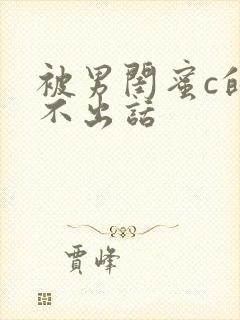 被男閨蜜c的
不出話
賈峰